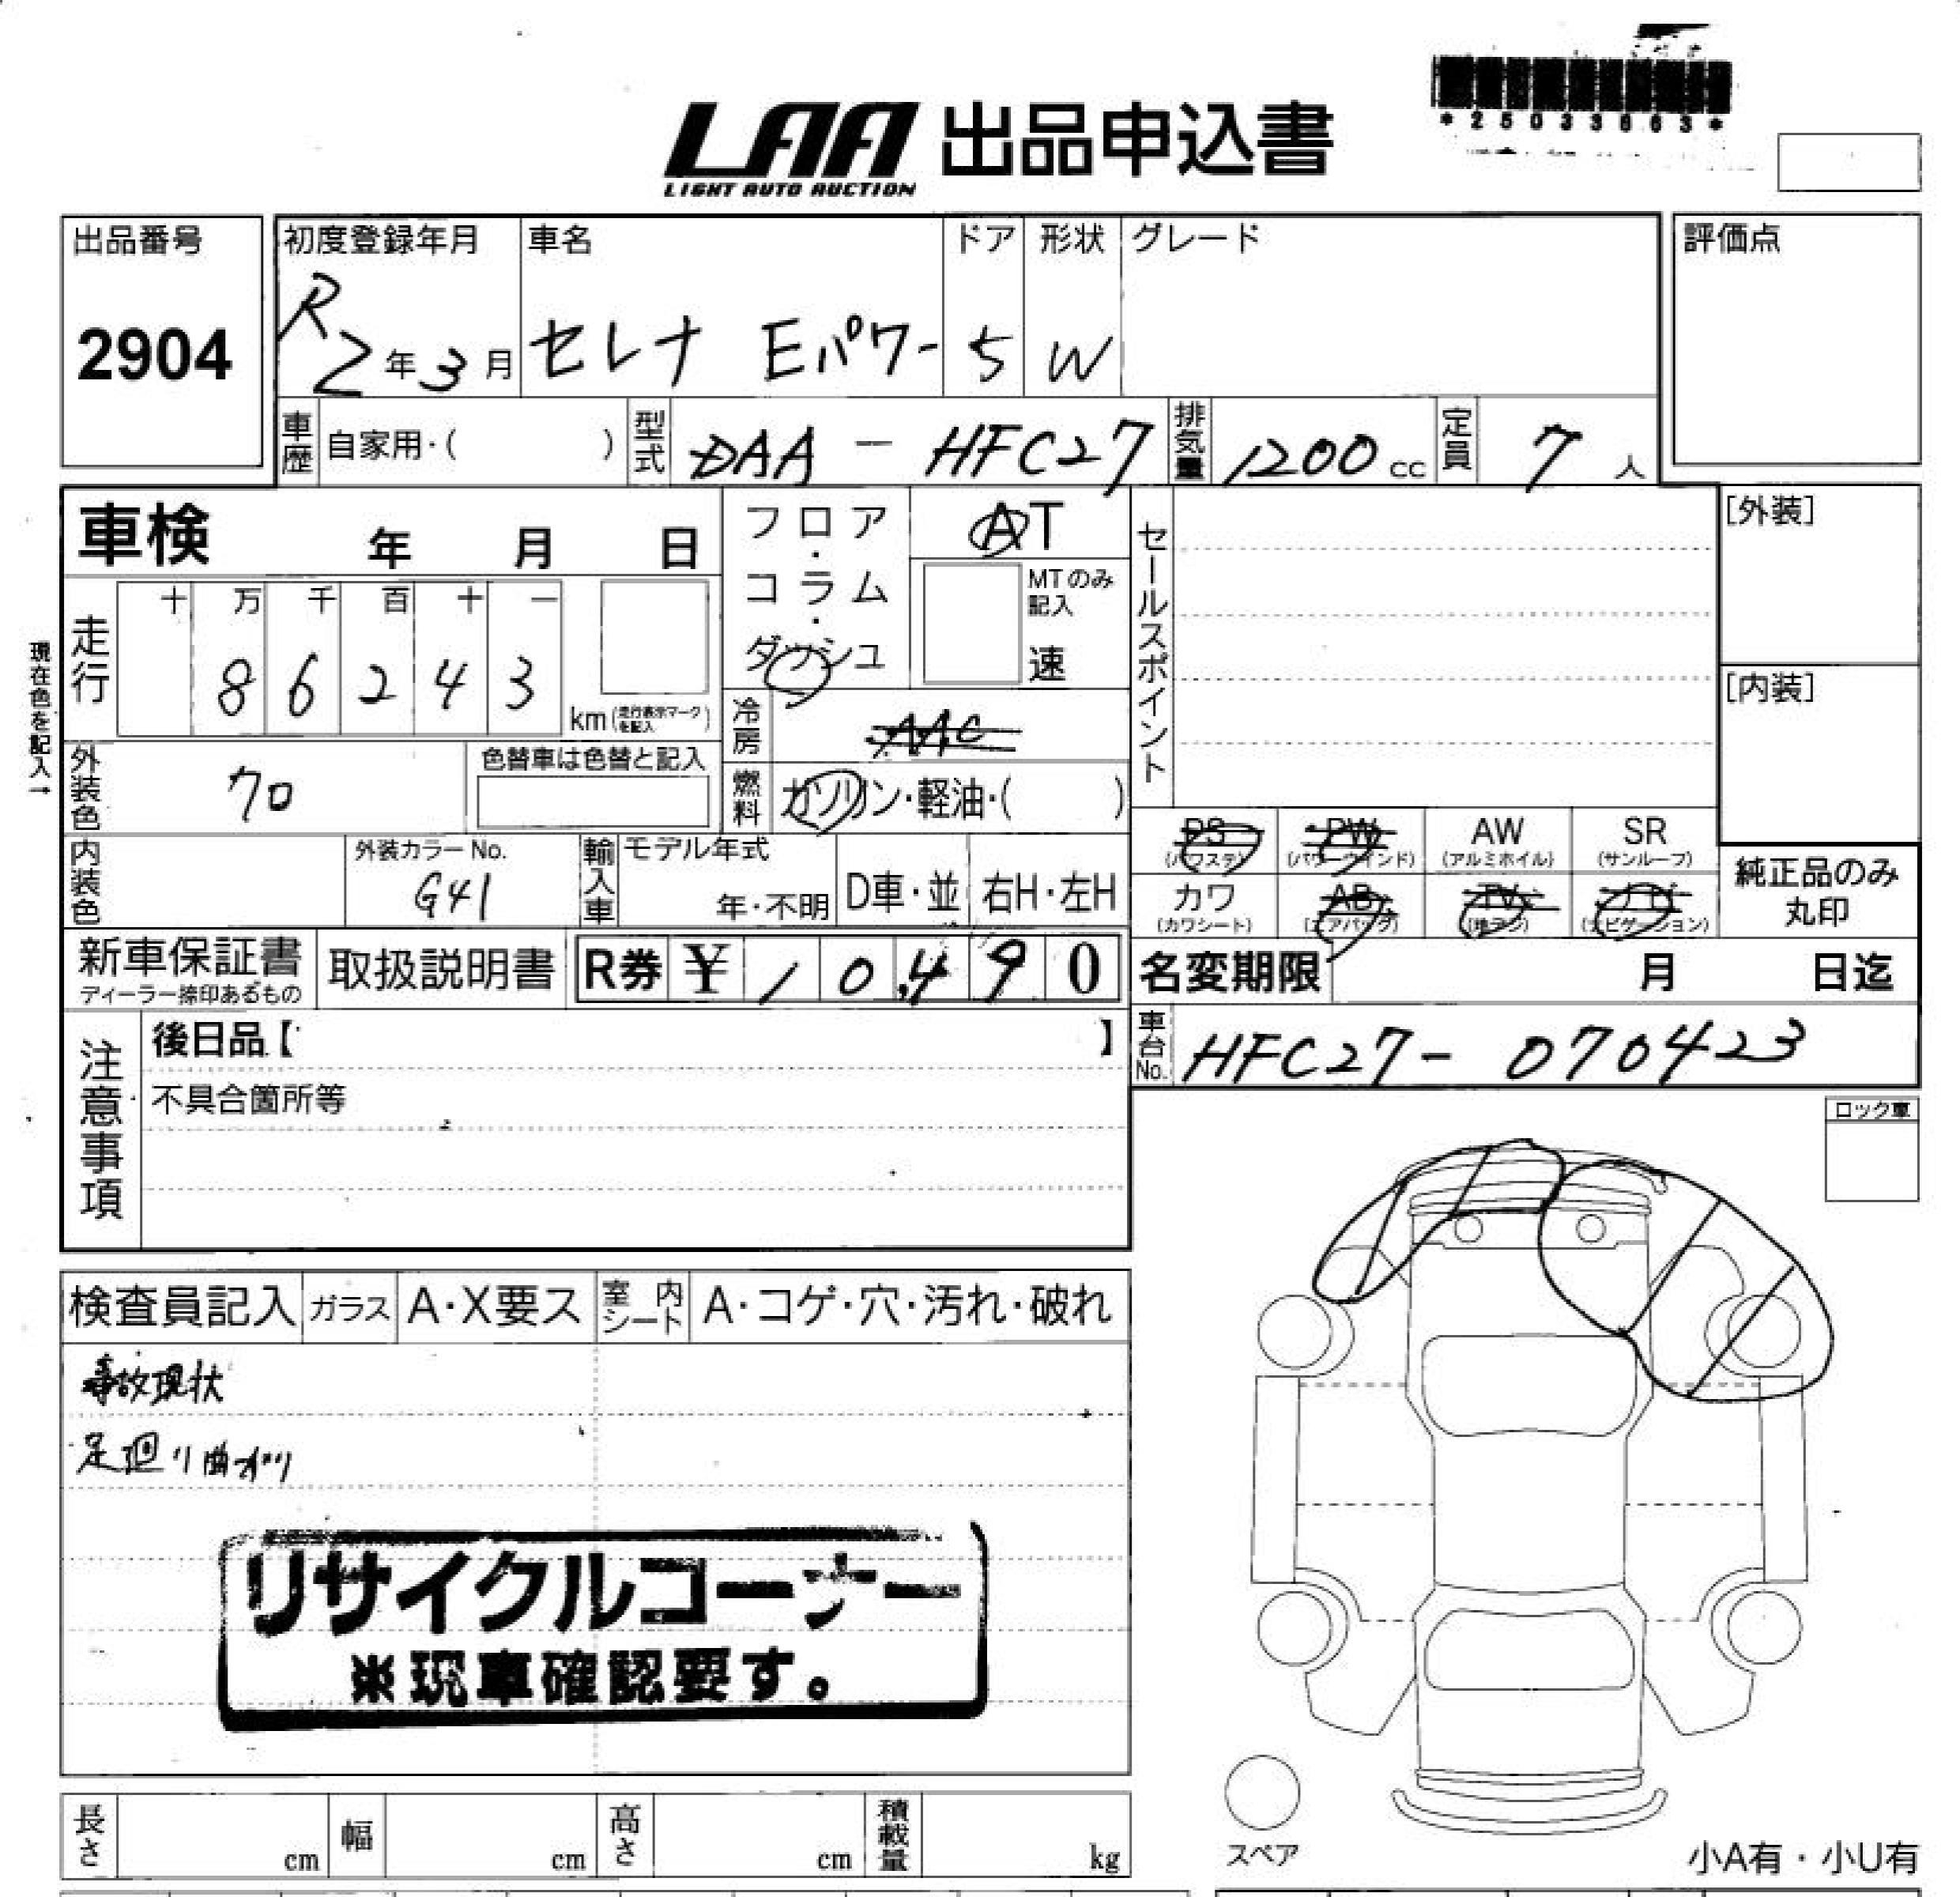 *25033063*
LAA 出品申込書
LIGHT AUTO AUCTION
出品番号
2904
初度登録年月
R2年3月
車名
セレナ Eパワー
ドア
5
形状
W
グレード
評価点
車歴
自家用・( )
型式
DAA - HFC27
排気量
1200cc
定員
7人
車検 年 月 日
フロア・コラム・ダッシュ
AT
MTのみ記入
速
セールスポイント
[外装]
[内装]
現在色を記入→
走行
十 万 千 百 十 一
8 6 2 4 3
km(走行表示マークを記入)
冷房
AAC
燃料
ガソリン・軽油・( )
外装色
クロ
色替車は色替と記入
内装色
外装カラーNo.
G41
輸入車
モデル年式
年・不明
D車・並
右H・左H
PS
(パワステ)
PW
(パワーウインド)
AW
(アルミホイル)
SR
(サンルーフ)
カワ
(カワシート)
AB
(エアバック)
TV
(地デジ)
ナビ
(ナビゲーション)
純正品のみ
丸印
新車保証書
ディーラー捺印あるもの
取扱説明書
R券 ¥10,490
名変期限 月 日迄
車台No.
HFC27-070423
注意事項
後日品【 】
不具合箇所等
ロック車
検査員記入
ガラス
A・X要ス
室内シート
A・コゲ・穴・汚れ・破れ
事故現状
足廻り曲がり
リサイクルコーナー
※現車確認要す。
長さ cm
幅 cm
高さ cm
積載量 kg
スペア
小A有・小U有